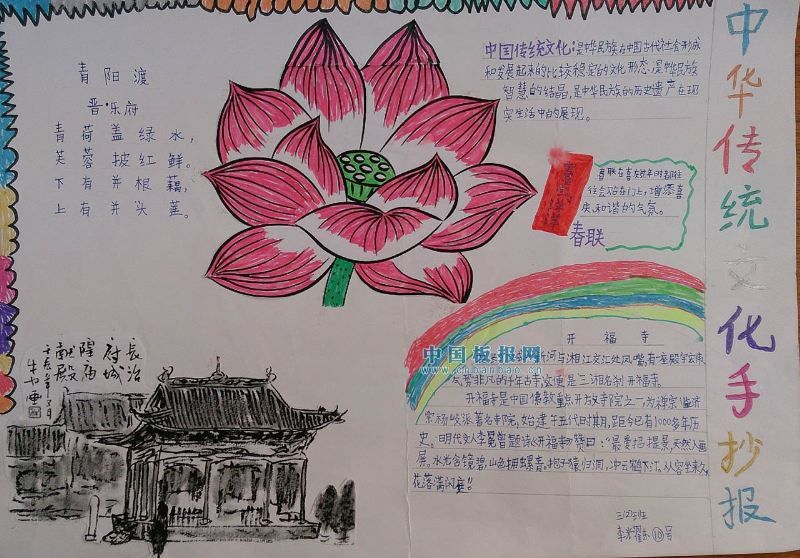 中华传统文化手抄报
青阳渡
晋·乐府
青荷盖绿水，
芙蓉披红鲜。
下有并根藕，
上有并头莲。
中国传统文化：是中华民族在中国古代社会形成
和发展起来的比较稳定的文化形态，是中华民族
智慧的结晶，是中华民族的历史遗产在现
实生活中的展现。
春联在喜
往会贴在门上，增添喜
庆、和谐的气氛。
春联
开福寺
河与湘江交汇处凤嘴，有一座殿宇宏伟
气势非凡的千年古寺，这便是三湘名刹开福寺。
开福寺是中国佛教重点开放寺院之一，为禅宗临济
宗杨岐派著名寺院，始建于五代时期，距今已有1000多年历
史。明代文人李冕曾题诗《开福寺》赞曰：“最爱招提景，天然入画
屏。水光含镜碧，山色拥螺青。抱子猿归洞，冲云鹤下汀。从容坐来久，
花落满闲庭！”
中国板报网
www.cnbanbao.cn
长治
府城
隍庙
献殿
三
李
号